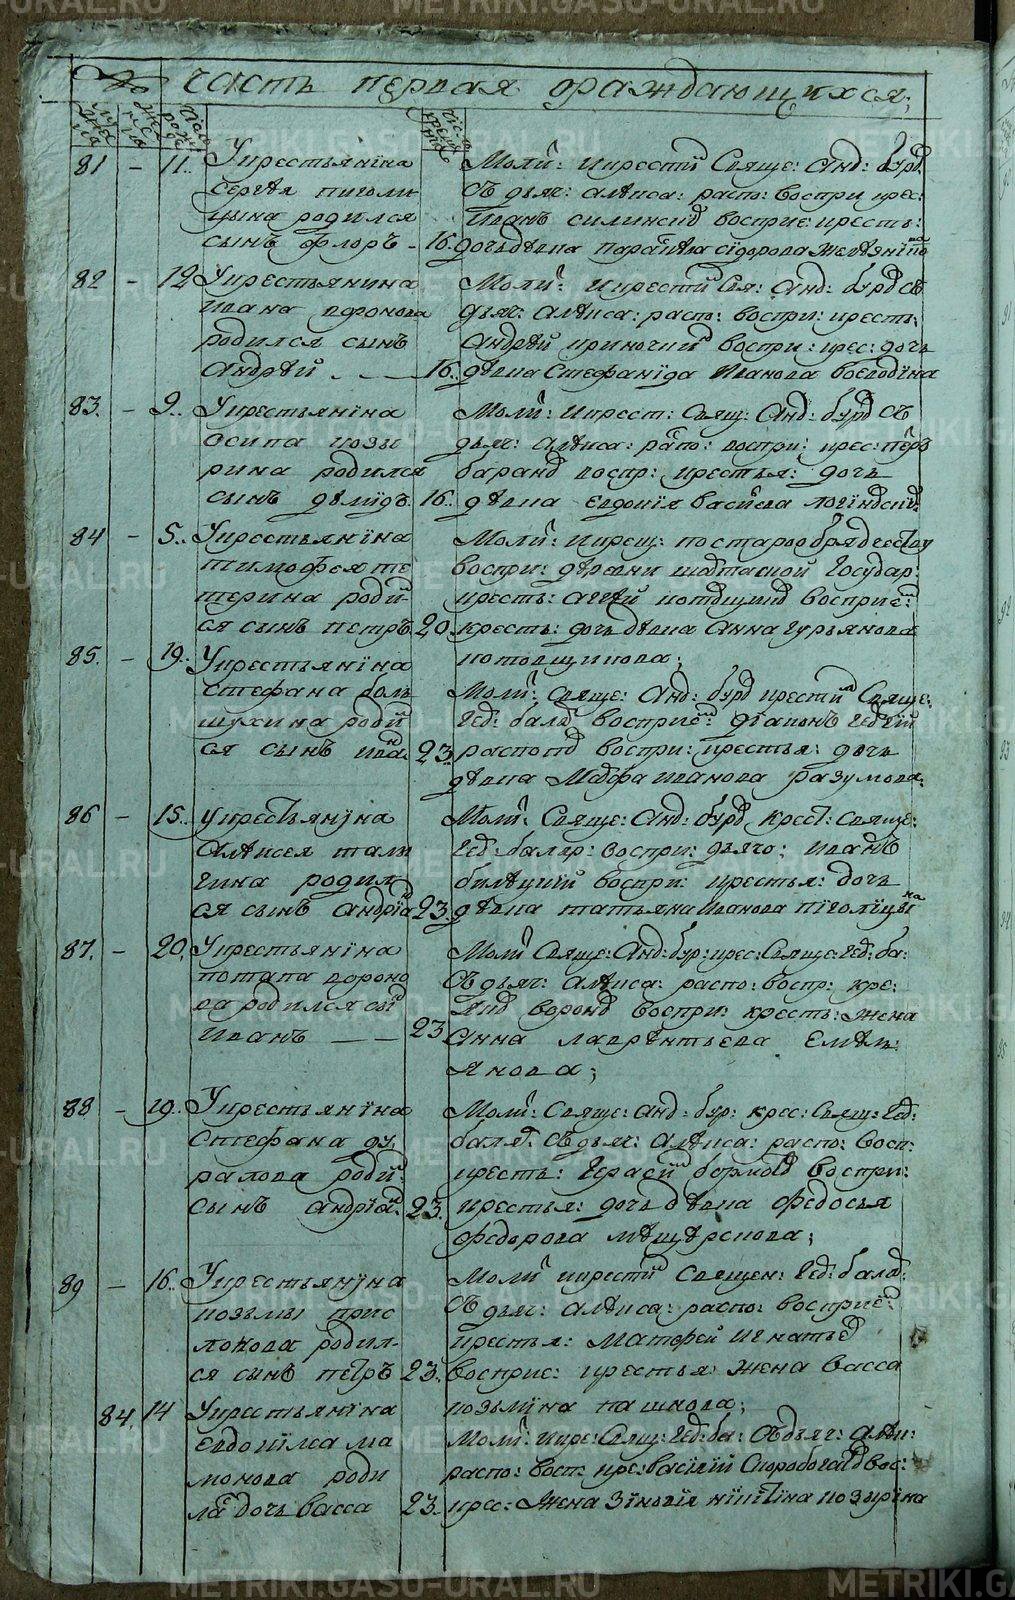 METRIKI.GASO-URAL.RU
часть первая ораждающихся;
81 – 11.. У крестьянїна
сергѣя пиголи
цына родился
сынъ флоръ – 16.
Моли: и крести Свяще: Анд: бурд
съ дьяч: алѣиса: распо: воспри: крес:
Иванъ воспри: кресть:
дочь дѣвка параскѣва сїдорова
82 – 12 У крестьянина
Ивана воронова
родился сынъ
Андрѣй — 16..
Моли: и крести Свя: Анд: бурд съ
дьяч: алѣиса: распо: воспри: кресть:
Андрѣй воспри: крес: дочь
дѣвка Стефанїда Иванова воеводїна
83. – 9.. У крестьянїна
осипа козы
рина родился
сынъ дѣмидъ. 16..
Моли: и крест: свящ: Анд: бурд съ
дьяч: алѣиса: распо: воспри: крес: пётр
баранд воспр: крестья: дочь
дѣвка Евдокїя васиева
84 – 5.. У крестьянїна
тимофея те
терина роди
ся сынъ петръ 20
Моли: и крещ: по старообрядчеству
воспри: дѣревни шадтаской Государ:
кресть: воспрїе:
кресть: дочь дѣвка Анна гурьянова
котовщикова;
85. – 19.. У крестьянїна
Стефана боль
шухина роди
ся сынъ ива 23.
Моли: свяще: Анд: бурд крести Свяще:
Гед: балд воспрїе: дїаконъ
распопд воспри: крестья: дочь
дѣвка Марфа Иванова разумова:
86 – 15.. У крестьянїна
Алѣисея талы
гина родил
ся сынъ андрїа 23.
Моли: Свяще: Анд: бурд крест: свяще:
Гед: балд: воспри: дьячо: иванъ
билѣцкїй воспри: крестья: дочь
дѣвка татьяна Иванова пїголїцына
87. – 20. У крестьянїна
потапа вороно
ва родился сы
Иванъ — — 23
Моли Свяще: Анд: бур: крес: Свяще: Гед: ба:
съ дьяч: алѣиса: распо: воспр: кре:
воронд воспри: кресть: жена
Анна лаврѣнтьева Емѣль
янова;
88 – 19.. У крестьянїна
Стефана ду
ралова роди
сынъ андрїа. 23.
Моли: Свяще: Анд: бур: крес: Свящ: Гед:
балд: съ дьяч: алѣиса: распо: восп:
кресть: Герасїй воспри:
крестья: дочь дѣвка федосья
федорова мѣщѣрскова;
89 – 16.. У крестьянїна
козьмы прис
локова родил-
ся сынъ петръ 23.
Моли и крести Священ: Гед: балд:
съ дьяч: алѣиса: распо: воспрїе:
крестья: Матфей игнатьев
восприс: крестья: жена васса
козьмїна пашкова;
84. 14 У крестьянїна
Евдокїма ма
монова роди
ла дочь васса 23.
Моли: и кре: Свящ: Гед: ба: съ дьяч: алѣи:
распо: восп: кре: василїй вос:
крес: Жена Зїновїя нїкитїна козырїна